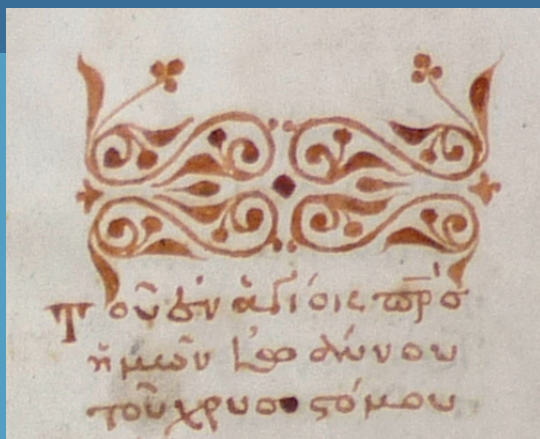 Τοῦ ἐν ἁγίοις πρς
ἡμῶν Ἰω
τοῦ χρυσοστόμου